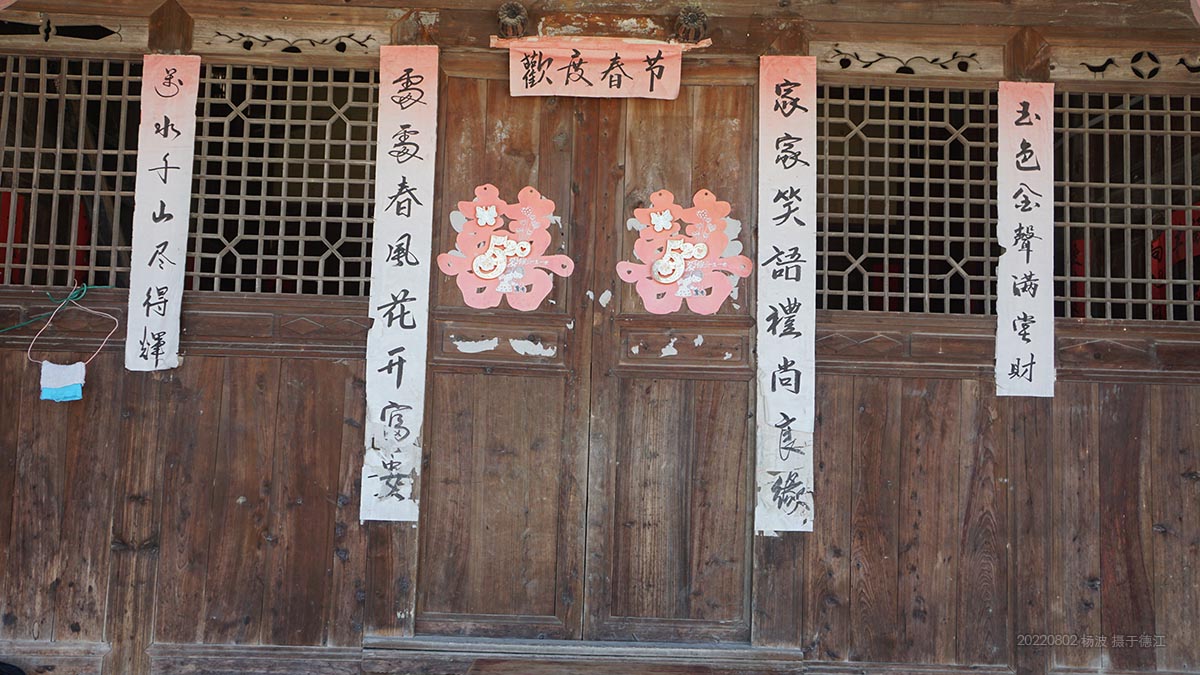 歡度春节
玉色金聲满堂财
家家笑語禮尚良緣
處處春風花开富貴
萬水千山尽得輝
520
520
20220802 杨波 摄于德江